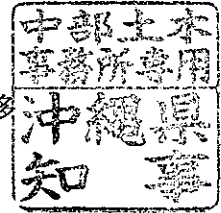 中部土木
事務所専用
沖縄県
知事